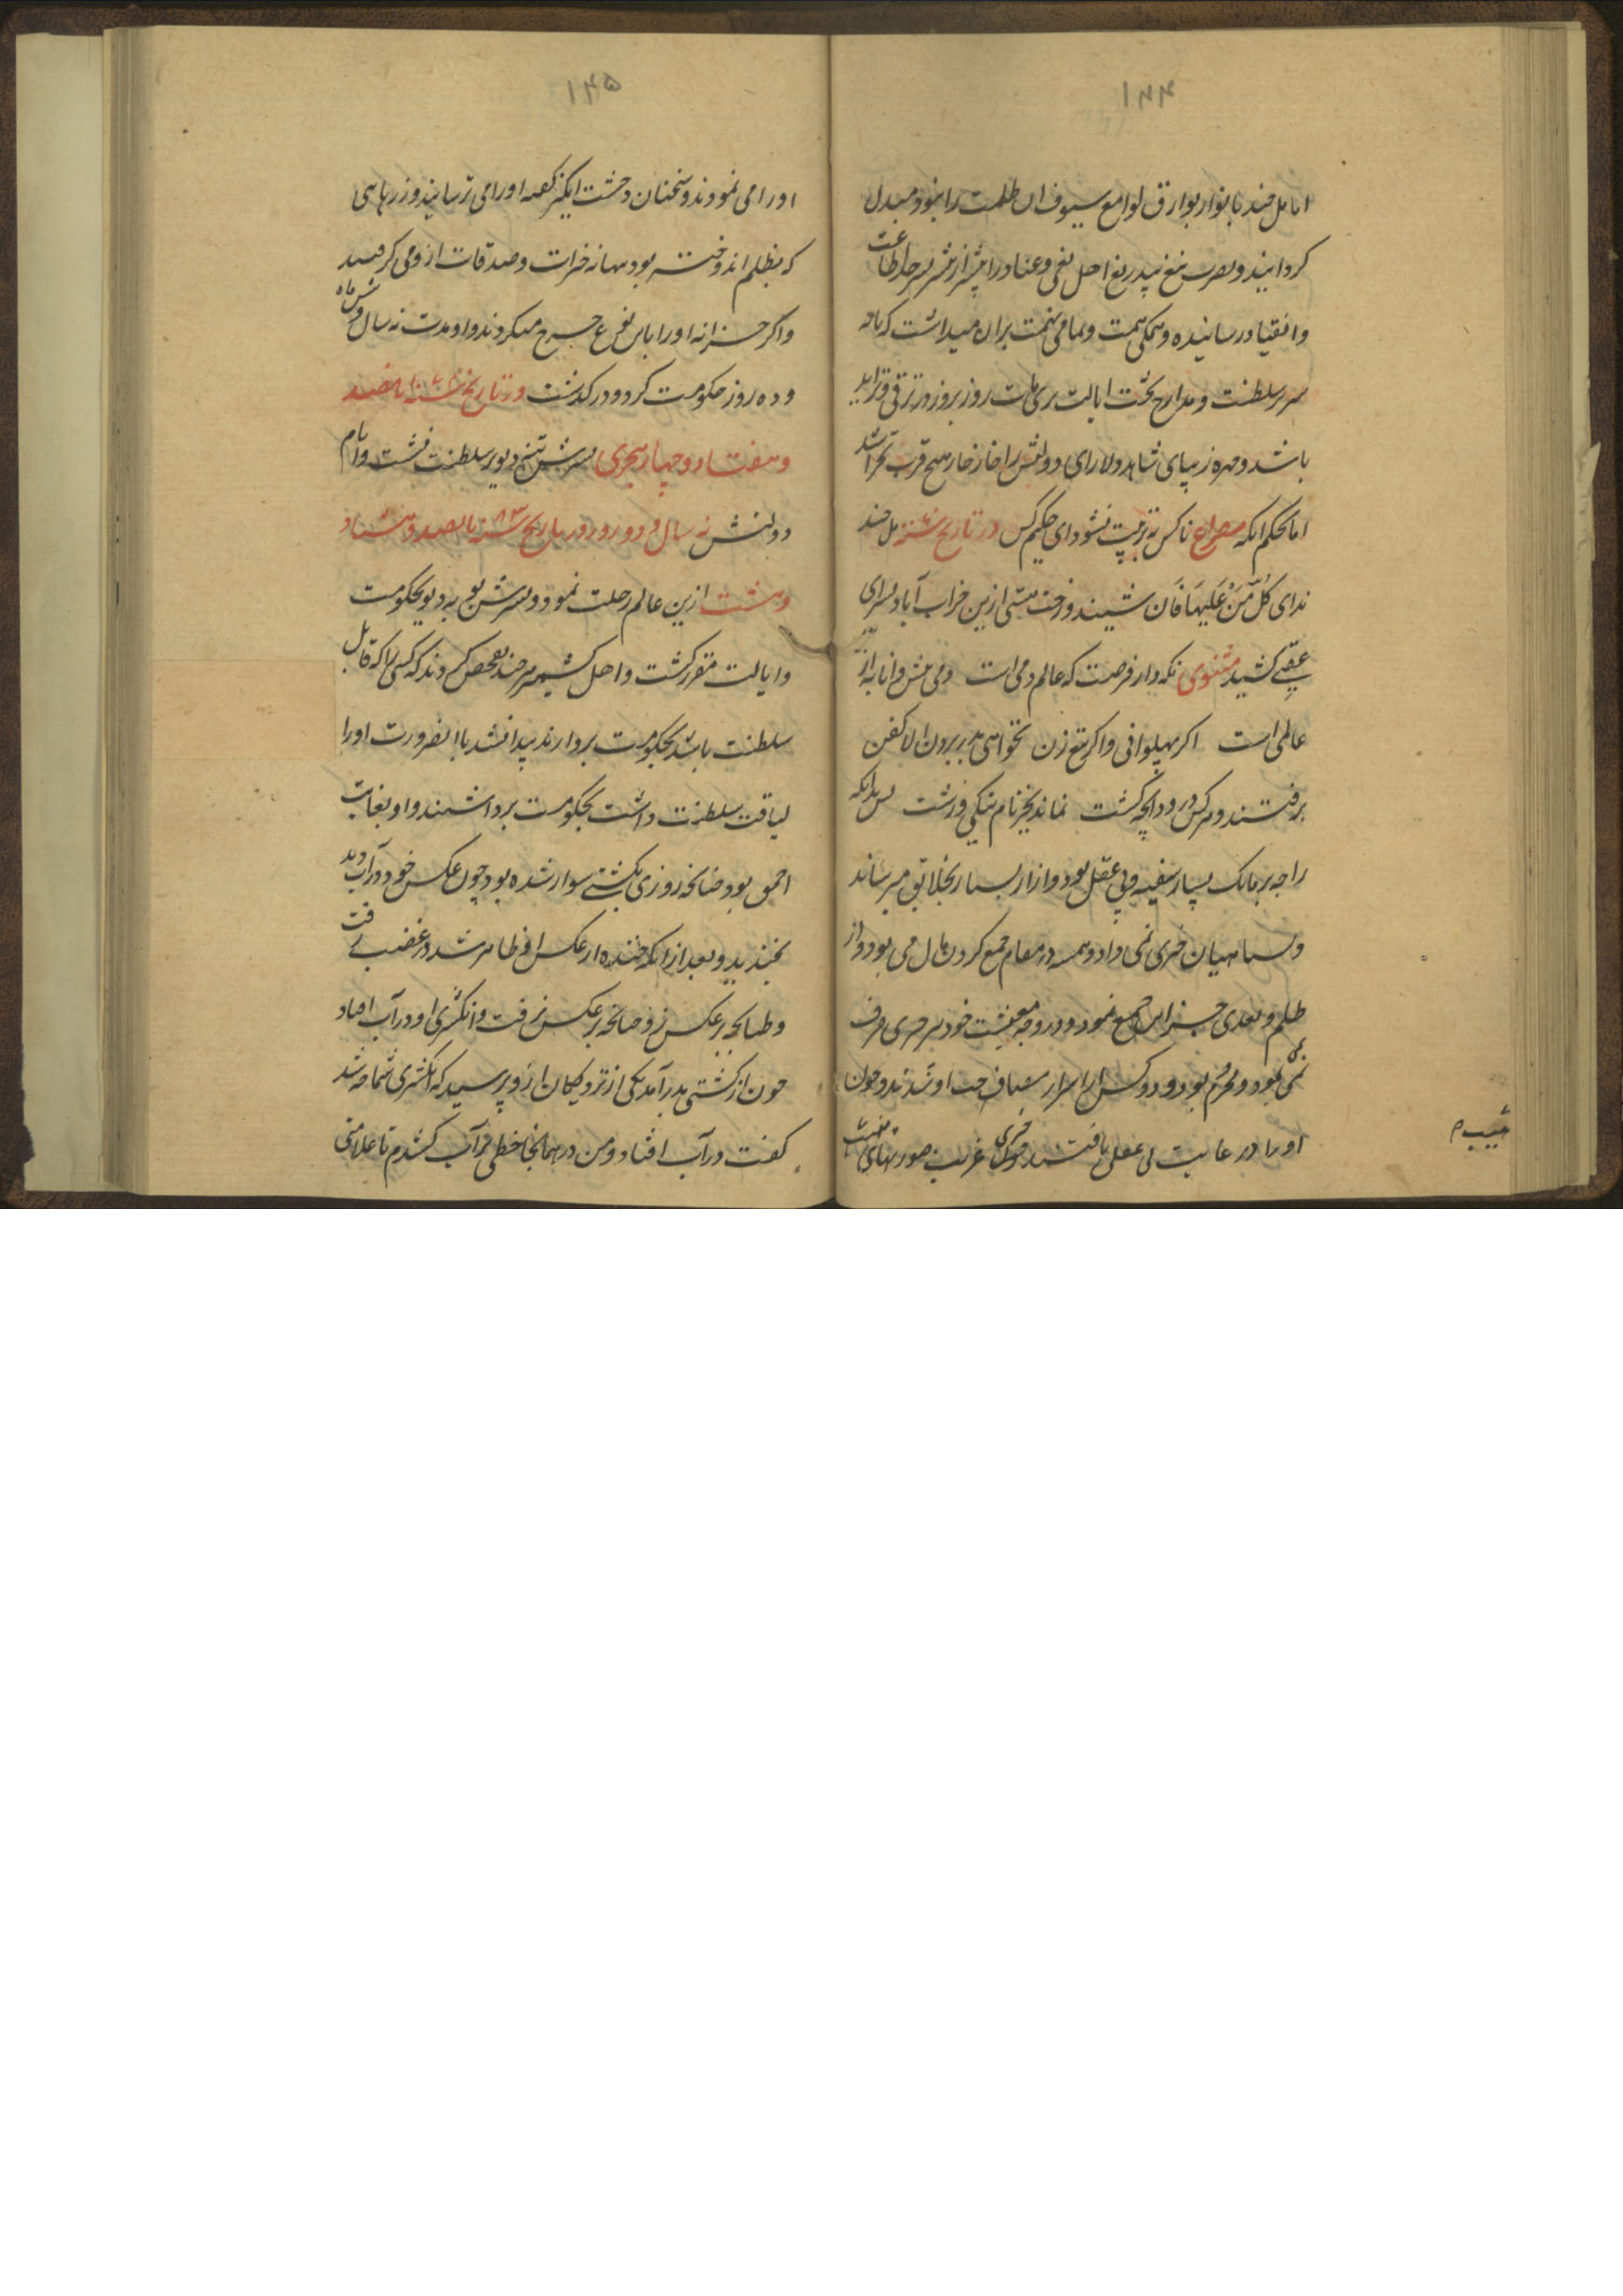 ۱۴۴
اما مل چند با نوار بوارق لوامع سیوف ان ظلمت را بنور مبدل
کردانید و بضرب تیغ بیدریغ اهل بغی و عناد را پیشتر از پیشتر بر جاده اطاعت
و انقیاد رسانیده و همکی همت و تمامی نهمت بران میداشت که تا چه
سریر سلطنت و مدارج تخت ایالت روز بروز در ترقی و تزاید
باشد و چهره زیبای شاهد دلارای دولتش را خار هیچ
اما بحکم انکه مصراع ناکس به تربیت نشود ای حکیم کس در تاریخ سنه مل چند
ندای کل من علیها فان شنید و رخت هستی ازین خراب آباد بسرای
عقبی کشید مثنوی نکه دار فرصت که عالم دمی است دمی پیش دانا به از
عالمی است اکر پهلوانی و اکر تیغ زن نخواهی بدر بردن الا کفن
برفتند و هر کس درود انچه کشت نماند بجز نام نیکی و زشت پس بدانکه
راجه بسیار سفیه و بی عقل بود و ازار بسیار بخلایق میرساند
و سپاهیان خرجی نمی داد و همه در مقام جمع کردن مال می بود و از
ظلم و تعدی خزاین جمع نمود و در وجه معیشت خود هر چیزی صرف
نمی نمود و محروم بود و
او را در غایت بی عقلی یافتند غریب صورتهای
حبیب م
۱۴۵
او را می نمودند و سخنان وحشت انکیز کفته او را می ترسانیدند و زرهای
که بظلم اندوخته بود ببهانه خیرات و صدقات از وی کرفتند
و اکر خزانه او را باین نوع خرج میکردند و او مدت نه سال و شش ماه
و ده روز حکومت کرد و در کذشت در تاریخ سنه پانصد
و هفتاد و چهار هجری پسرش دیو بر سلطنت نشست و ایام
دولتش نه سال و دو روز در تاریخ سنه پانصد و هشتاد
و هشت ازین عالم رحلت نمود و پسرش به دیو بحکومت
و ایالت مقرر کشت و اهل کشمیر هر چند تفحص کردند که کسی را که قابل
سلطنت باشد بحکومت بردارند پیدا نشد بالضرورت او را
لیاقت سلطنت داشت بحکومت برداشتند و او بغایت
احمق بود چنانچه روزی بکشتی سوار شده بود چون عکس خود در آب دید
بخندید و بعد از انکه خنده از عکس او ظاهر شد در غضب رفت
و طپانچه بر عکس زد چنانچه بر عکس نرفت و انکشتری او در آب افتاد
چون از کشتی بدر آمد یکی از نزدیکان از و پرسید که انکشتری شما چه شد
کفت در آب افتاد و من در همانجا خطی بر آب کشیدم تا علامتی